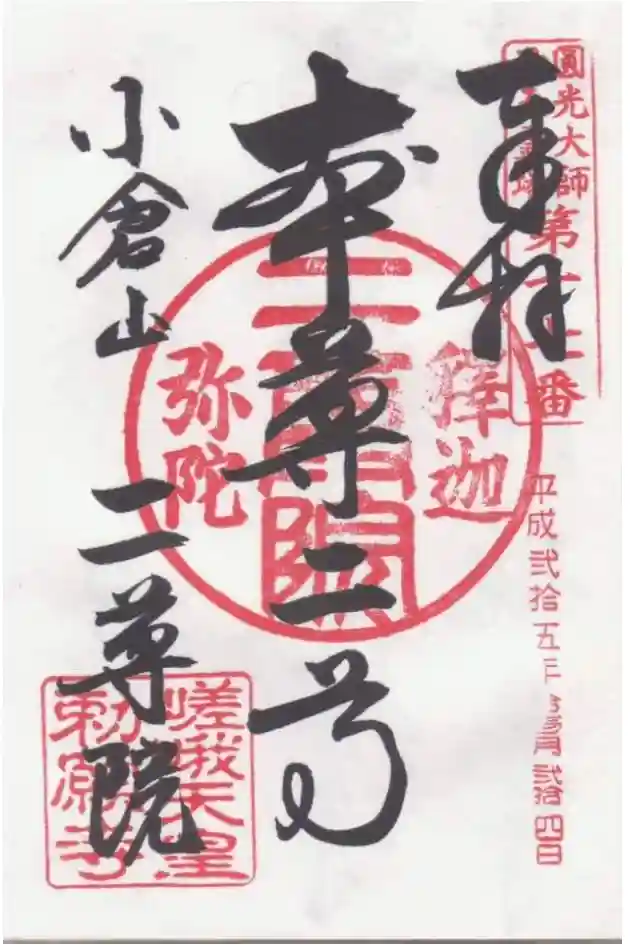 圓光大師
第十七番
奉拝
平成弐拾五年
月弐拾四日
本尊二尊
釋迦
二尊院
弥陀
小倉山 二尊院
嵯峨天皇
勅願寺